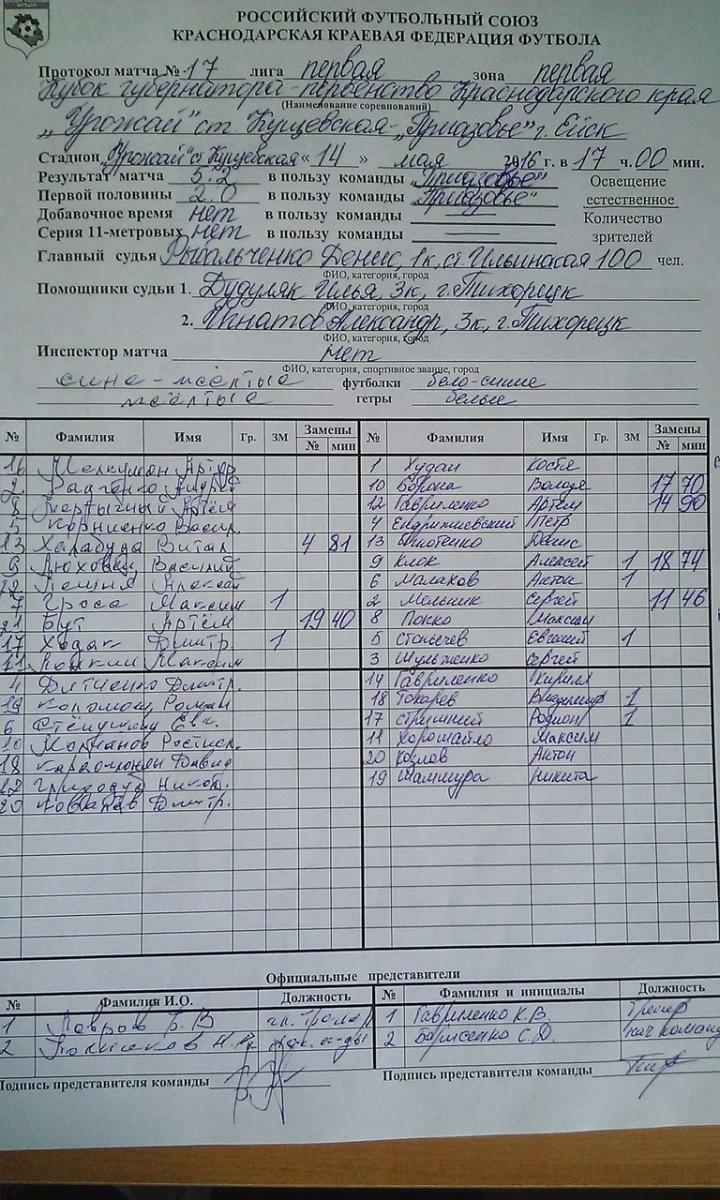 РОССИЙСКИЙ ФУТБОЛЬНЫЙ СОЮЗ
КРАСНОДАРСКАЯ КРАЕВАЯ ФЕДЕРАЦИЯ ФУТБОЛА
Протокол матча № 17 лига первая зона первая
Кубок губернатора - первенство Краснодарского края
(Наименование соревнований)
„Урожай" ст Кущевская - „Приазовье" г. Ейск
Стадион „Урожай" ст Кущевская « 14 » мая 2016 г. в 17 ч. 00 мин.
Результат матча 5:2 в пользу команды „Приазовье" Освещение
Первой половины 2:0 в пользу команды „Приазовье" естественное
Добавочное время нет в пользу команды — Количество
Серия 11-метровых нет в пользу команды — зрителей
Главный судья Рыбальченко Денис, 1к, ст Ильинская 100 чел.
ФИО, категория, город
Помощники судьи 1. Дудуляк Илья, 3к, г. Тихорецк
ФИО, категория, город
2. Игнатов Александр, 3к, г. Тихорецк
ФИО, категория, город
Инспектор матча нет
ФИО, категория, спортивное звание, город
сине - жёлтые футболки бело-синие
жёлтые гетры белые
№ Фамилия Имя Гр. ЗМ Замены № мин № Фамилия Имя Гр. ЗМ Замены № мин
16 Мелкумян Артур 1 Худан Костя
2 Радченко Андрей 10 Володя 17 70
8 Артём 12 Гавриленко Артём 14 90
5 Корниенко Васил. 4 Пётр
13 Халабуда Витал 4 81 13 Денис
9 Василий 9 Клок Алексей 1 18 74
22 Алексей 6 Малаков Антон 1
7 Гроза Максим 1 2 Мельник Сергей 11 46
21 Бут Артём 19 40 8 Попко Максим
17 Ходак Дмитр. 1 5 Евгений 1
11 Максим 3 Шульженко Сергей
4 Дятченко Дмитр. 14 Гавриленко Кирилл
19 Коломоец Роман 18 Токарев Владимир 1
6 Евг. 17 Стримний Родион 1
10 Молчанов Ростисл. 11 Хорошайло Максим
18 Давид 20 Козлов Антон
12 Приходько Никол. 19 Шаммура Никита
20 Дмитр.
Официальные представители
№ Фамилия И.О. Должность № Фамилия и инициалы Должность
1 Лавров Б.В гл. тренер 1 Гавриленко К.В. Тренер
2 2 Борисенко С.Д. нач команд
Подпись представителя команды Подпись представителя команды